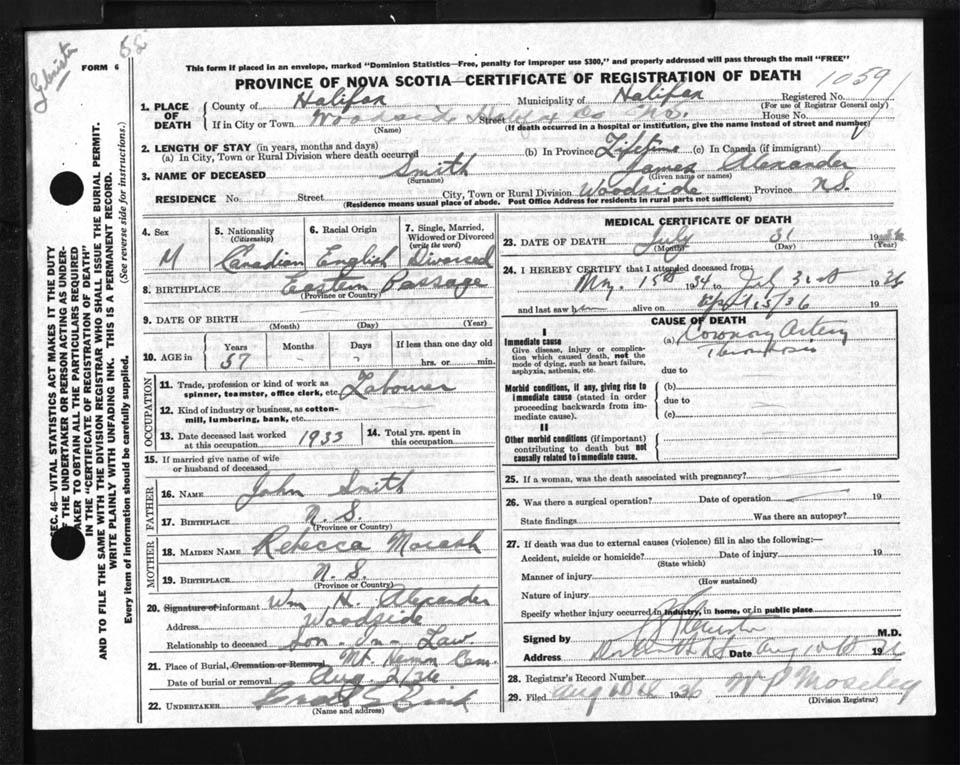 58
FORM 6
This form if placed in an envelope, marked "Dominion Statistics—Free, penalty for improper use $300," and properly addressed will pass through the mail "FREE"
PROVINCE OF NOVA SCOTIA—CERTIFICATE OF REGISTRATION OF DEATH
1059
1. PLACE OF DEATH
County of Halifax Municipality of Halifax Registered No.
(For use of Registrar General only)
If in City or Town Woodside Street House No.
(Name) (If death occurred in a hospital or institution, give the name instead of street and number)
2. LENGTH OF STAY (in years, months and days)
(a) In City, Town or Rural Division where death occurred (b) In Province Lifetime (c) In Canada (if immigrant)
3. NAME OF DECEASED Smith James Alexander
(Surname) (Given name or names)
RESIDENCE No. Street City, Town or Rural Division Woodside Province N.S.
(Residence means usual place of abode. Post Office Address for residents in rural parts not sufficient)
SEC. 46—VITAL STATISTICS ACT MAKES IT THE DUTY
OF THE UNDERTAKER OR PERSON ACTING AS UNDER-
TAKER TO OBTAIN ALL THE PARTICULARS REQUIRED
IN THE "CERTIFICATE OF REGISTRATION OF DEATH"
AND TO FILE THE SAME WITH THE DIVISION REGISTRAR WHO SHALL ISSUE THE BURIAL PERMIT.
WRITE PLAINLY WITH UNFADING INK. THIS IS A PERMANENT RECORD.
Every item of information should be carefully supplied. (See reverse side for instructions.)
4. Sex
M
5. Nationality
(Citizenship)
Canadian
6. Racial Origin
English
7. Single, Married, Widowed or Divorced
(write the word)
Divorced
8. BIRTHPLACE Eastern Passage
(Province or Country)
9. DATE OF BIRTH
(Month) (Day) (Year)
10. AGE in
Years Months Days If less than one day old
57 hrs. or min.
OCCUPATION
11. Trade, profession or kind of work as
spinner, teamster, office clerk, etc. Labourer
12. Kind of industry or business, as cotton-
mill, lumbering, bank, etc.
13. Date deceased last worked
at this occupation 1933
14. Total yrs. spent in
this occupation
15. If married give name of wife
or husband of deceased
FATHER
16. NAME John Smith
17. BIRTHPLACE N. S.
(Province or Country)
MOTHER
18. MAIDEN NAME Rebecca Marash
19. BIRTHPLACE N. S.
(Province or Country)
20. Signature of informant Wm H. Alexander
Address Woodside
Relationship to deceased Son-In-Law
21. Place of Burial, Cremation or Removal Mt. Hermon Cem.
Date of burial or removal Aug. 2/36
22. UNDERTAKER
(Name and address)
MEDICAL CERTIFICATE OF DEATH
23. DATE OF DEATH July 31 1936
(Month) (Day) (Year)
24. I HEREBY CERTIFY that I attended deceased from:
May 15th 34 to July 31st 1936
and last saw him alive on 15/36 19
CAUSE OF DEATH
I
Immediate cause
Give disease, injury or complica-
tion which caused death, not the
mode of dying, such as heart failure,
asphyxia, asthenia, etc.
(a) Coronary Artery
Thrombosis
due to
Morbid conditions, if any, giving rise to
immediate cause (stated in order
proceeding backwards from im-
mediate cause).
(b)
due to
(c)
II
Other morbid conditions (if important)
contributing to death but not
causally related to immediate cause.
25. If a woman, was the death associated with pregnancy?
26. Was there a surgical operation? Date of operation 19
State findings Was there an autopsy?
27. If death was due to external causes (violence) fill in also the following:—
Accident, suicide or homicide? Date of injury 19
(State which)
Manner of injury
(How sustained)
Nature of injury
Specify whether injury occurred in industry, in home, or in public place
Signed by M.D.
Address Date Aug 10th 1936
28. Registrar's Record Number
29. Filed Aug 10th 1936 W P Moseley
(Division Registrar)